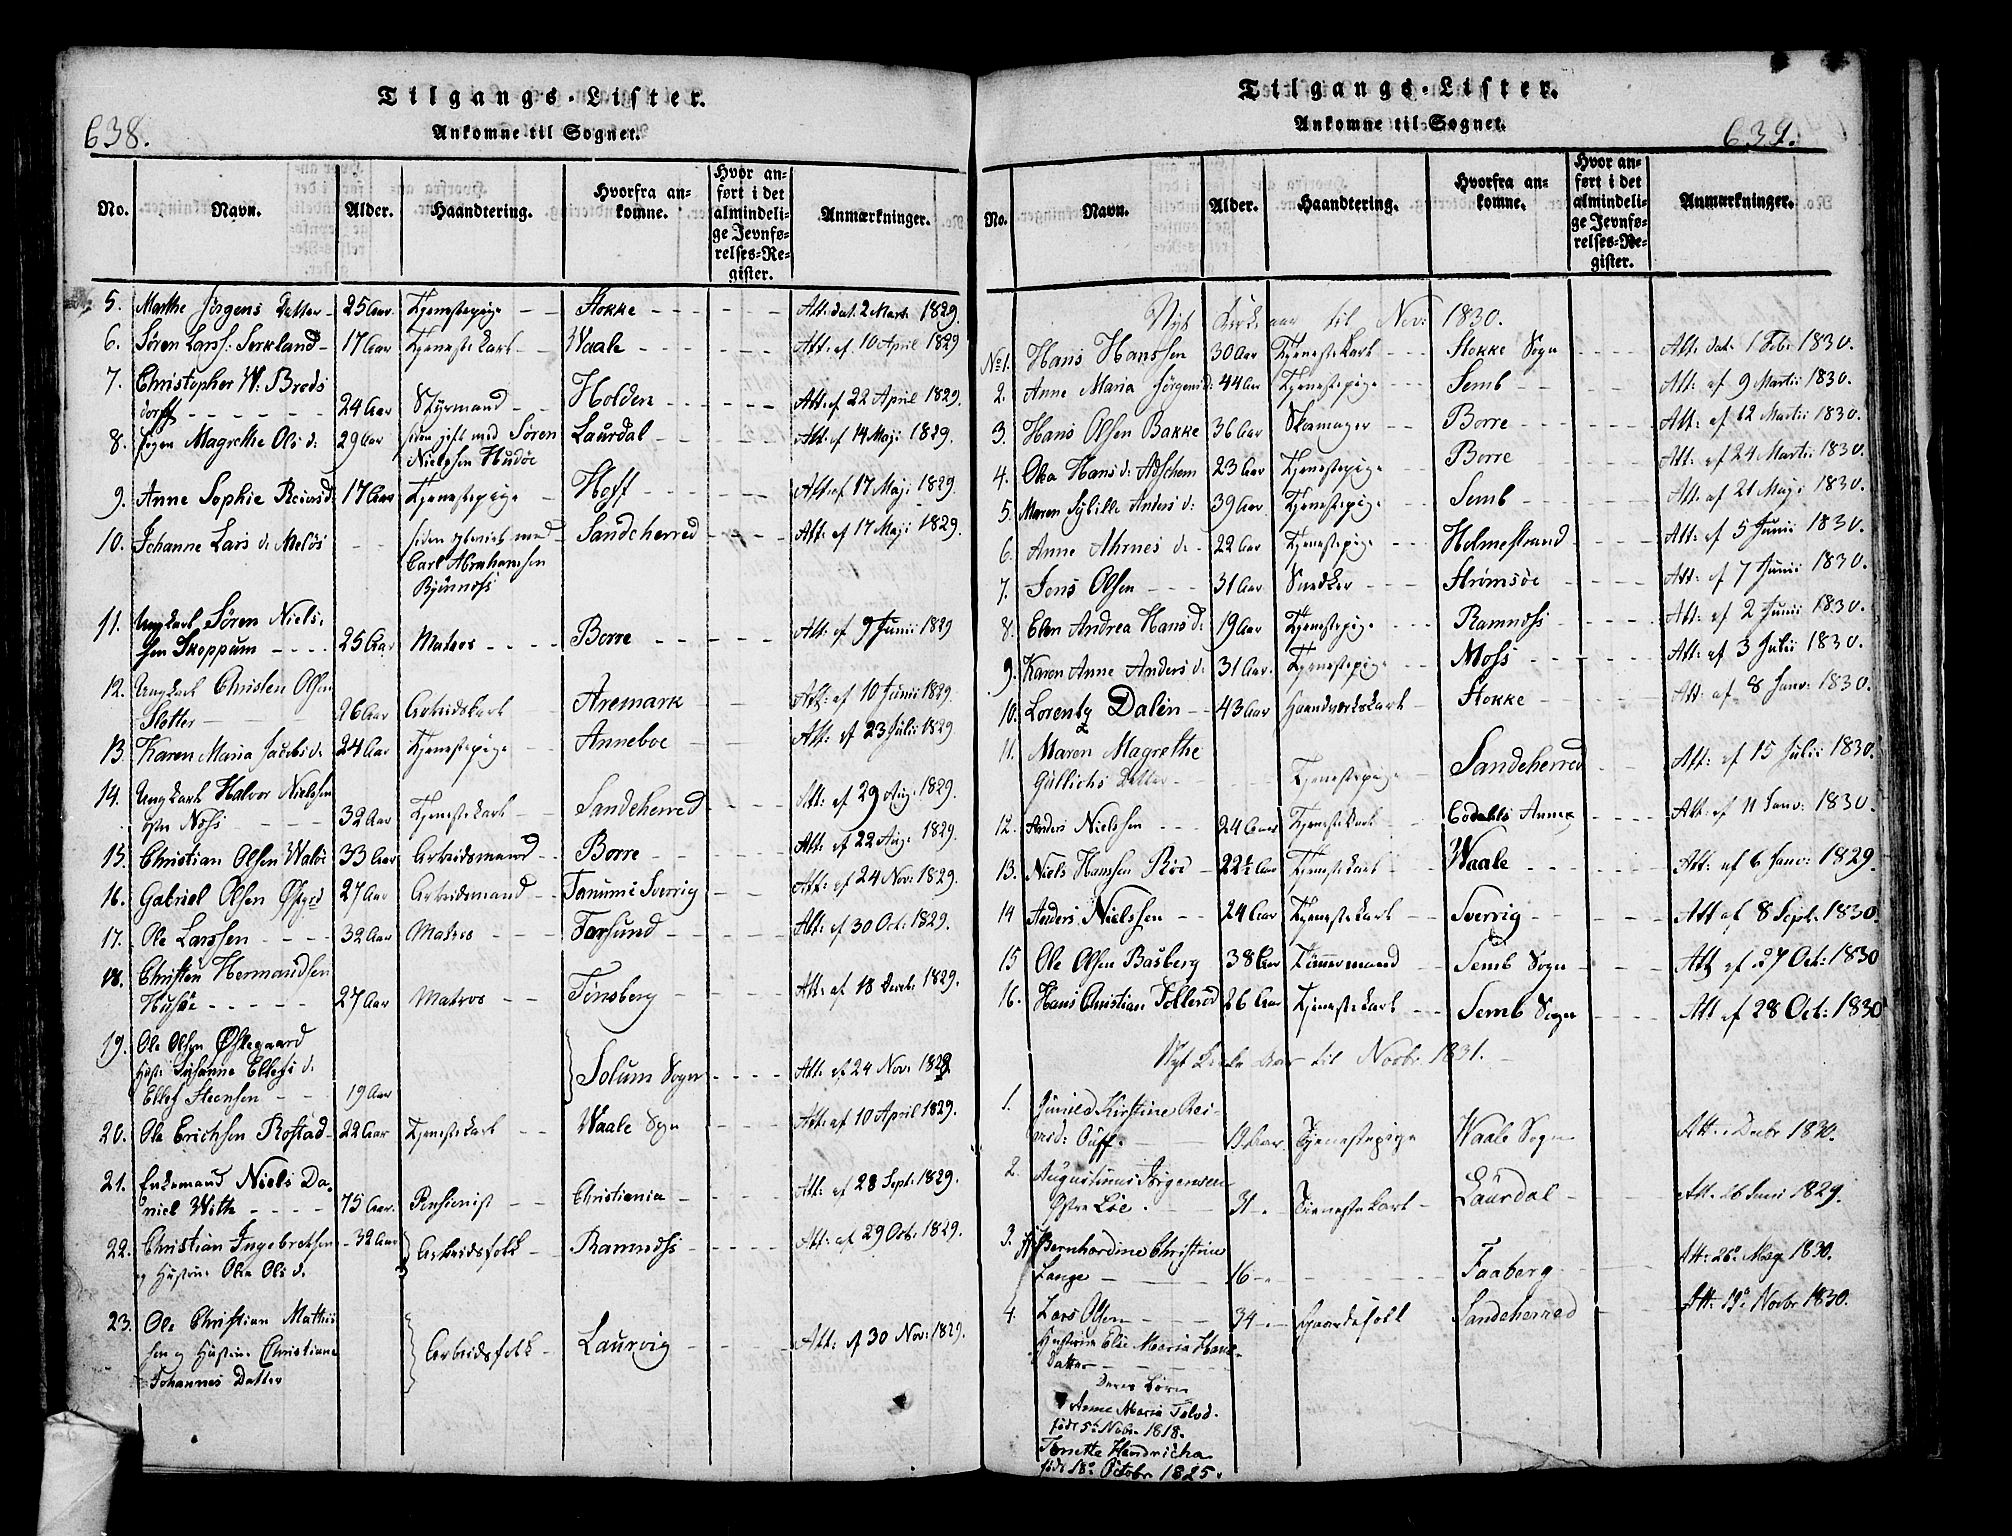 638.
Tilgangs-Lister.
Ankomne til Sognet.
No. Navn. Alder. Haandtering. Hvorfra ankomne. Hvor anført i det almindelige Jevnførelses-Register. Anmærkninger.
5. Marthe Jørgens Datter 25 Aar Tjenestepige Stokke Att: dat. 2 Mart: 1829.
6. Søren Larss: 17 Aar Tjenestekarl Waale Att: af 10 April 1829
7. Christopher W: Breds
dorff 24 Aar Styrmand Holden Att: af 22 April 1829.
8. Magrethe Ols d: 29 Aar siden gift med Søren Laurdal Att: af 14 Maji 1829.
Nielsen Hudøe
9. Anne Sophie 17 Aar Tjenestepige Hoff Att: af 17 Maji 1829.
10. Johanne Lars d: Meløs siden med Sandeherred Att: af 17 Maji 1829.
Carl Abrahamsen
11. Ungkarl Søren Niels-
sen Skoppum 25 Aar Matros Borre Att: af 9 Junii 1829
12. Ungkarl Christen Olsen
Sletter 26 Aar Arbeidskarl Aremark Att: af 10 Junii 1829.
13. Karen Maria Jacobs d: 24 Aar Tjenestepige Anneboe Att: af 23 Julii 1829.
14. Ungkarl Halvor Nielsen
32 Aar Tjenestekarl Sandeherred Att: af 29 Aug: 1829.
15. Christian Olsen 33 Aar Arbeidsmand Borre Att: af 22 Aug: 1829.
16. Gabriel Olsen 27 Aar Arbeidsmand Tanum i Sverrig Att: af 24 Nov: 1829.
17. Ole Larssen 32 Aar Matros Farsund Att: af 30 Oct: 1829.
18. Christen Hermandsen
27 Aar Matros Tønsberg Att: af 18 Decbr: 1829.
19. Ole Olsen Østegaard
Hust: Susanne Ellefs d. Solum Sogn Att: af 24 Nov: 1829
Ellef Steensen 19 Aar
20. Ole Erichsen Rostad 22 Aar Tjenestekarl Waale Sogn Att: af 10 April 1829.
21. Enkemand Niels Da-
niel With 75 Aar. Pensionist Christiania Att: af 28 Sept: 1829.
22. Christian Ingebretsen 32 Aar Arbeidsfolk Ramnæss Att: af 29 Oct: 1829.
og Hustrue Olea Ols d.
23. Ole Christian Mathis
sen og Hustrue Christiane Arbeidsfolk Laurvig Att: af 30 Nov: 1829.
Johannes Datter
639.
Tilgangs-Lister.
Ankomne til Sognet.
No. Navn. Alder. Haandtering. Hvorfra ankomne. Hvor anført i det almindelige Jevnførelses-Register. Anmærkninger.
Nyt Kirke aar til Nov: 1830.
No 1. Hans Hanssen 30 Aar Tjenestekarl Stokke Sogn Att: dat: 1 Feb: 1830.
2. Anne Maria Jørgens d: 44 Aar Tjenestepige Semb Att: af 9 Martii 1830.
3. Hans Olsen Bakke 36 Aar Skomager Borre Att: af 12 Martii 1830.
4. Olea Hans d: 23 Aar Tjenestepige Borre Att: af 24 Martii 1830.
5. Maren Sybille Anders d: 39 Aar Tjenestepige Semb Att: af 21 Maji 1830.
6. Anne d. 22 Aar Tjenestepige Holmestrand Att: af 5 Junii 1830.
7. Jens Olsen 31 Aar Snedker Strømsøe Att: af 7 Junii 1830.
8. Elen Andrea Hans d: 19 Aar Tjenestepige Ramnæss Att: af 2 Junii 1830.
9. Karen Anne Anders d: 31 Aar. Tjenestepige Moss Att: af 3 Julii 1830.
10. Lorentz Dalen 43 Aar Haandværkskarl Stokke Att: af 8 Janv: 1830.
11. Maren Magrethe
Gullichs Datter Tjenestepige Sandeherred Att: af 15 Julii 1830.
12. Anders Nielssen 24 Aar Tjenestekarl Annex Att: af 11 Janv: 1830.
13. Niels Hansen 22½ Aar Tjenestekarl Waale Att: af 6 Janv: 1829.
14 Anders Nielssen 24 Aar Tjenestekarl Sverrig Att af 8 Sept: 1830.
15 Ole Olsen Basberg 38 Aar Tømmermand Semb Sogn Att af 27 Oct: 1830
16. Hans Christian 26 Aar Tjenestekarl Semb Sogn Att af 28 Oct: 1830
Nyt Kirke Aar til Novbr 1831.
1. Gunild Kirstine Rei-
19 Aar Tjenestepige Waale Sogn Att: Decbr 1830.
2. Augustinus Jørgensen
Østre Løe. 31 Tienestekarl Laurdal Att. 26 Juni 1829.
3. Bernhardine Christine
Lange 16 Faaberg Att: 26 May 1830.
4. Lars Olsen 34 Gaardsfolk Sandeherred Att: 19 Novbr 1830.
Hustrue Else Maria Hans
Datter
Deres Børn
Anne Maria
født 5 Novbr 1818.
Tonette Hendricka
født 18 Octobr 1825.